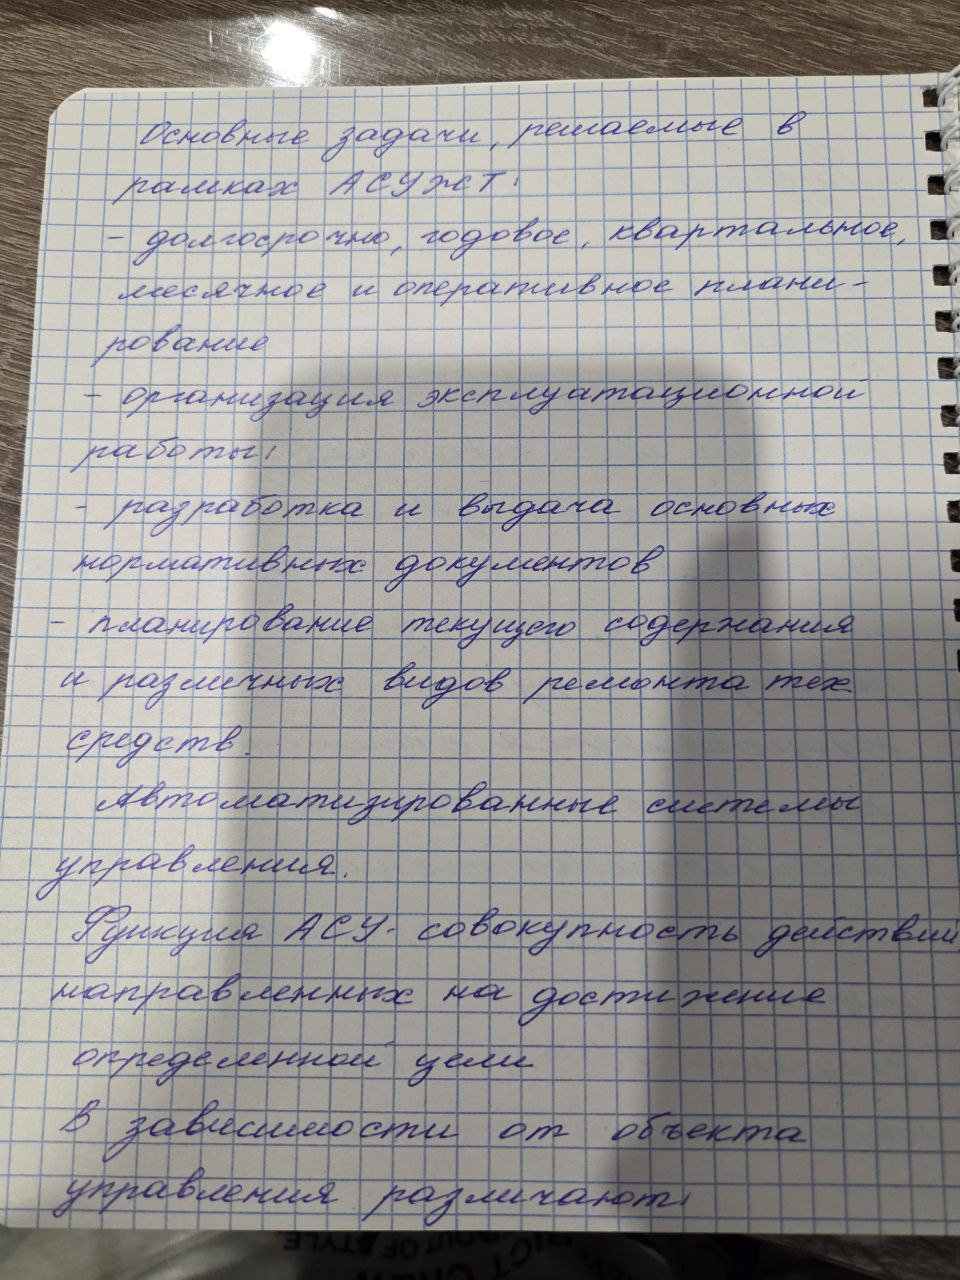 Основные задачи, решаемые в
рамках АСУЖТ:
- долгосрочно, годовое, квартальное,
месячное и оперативное плани-
рование
- организация эксплуатационной
работы;
- разработка и выдача основных
нормативных документов
- планирование текущего содержания
и различных видов ремонта тех
средств.
Автоматизированные системы
управления.
Функция АСУ - совокупность действий
направленных на достижение
определенной цели
В зависимости от объекта
управления различают:
OUT OF STYLE.